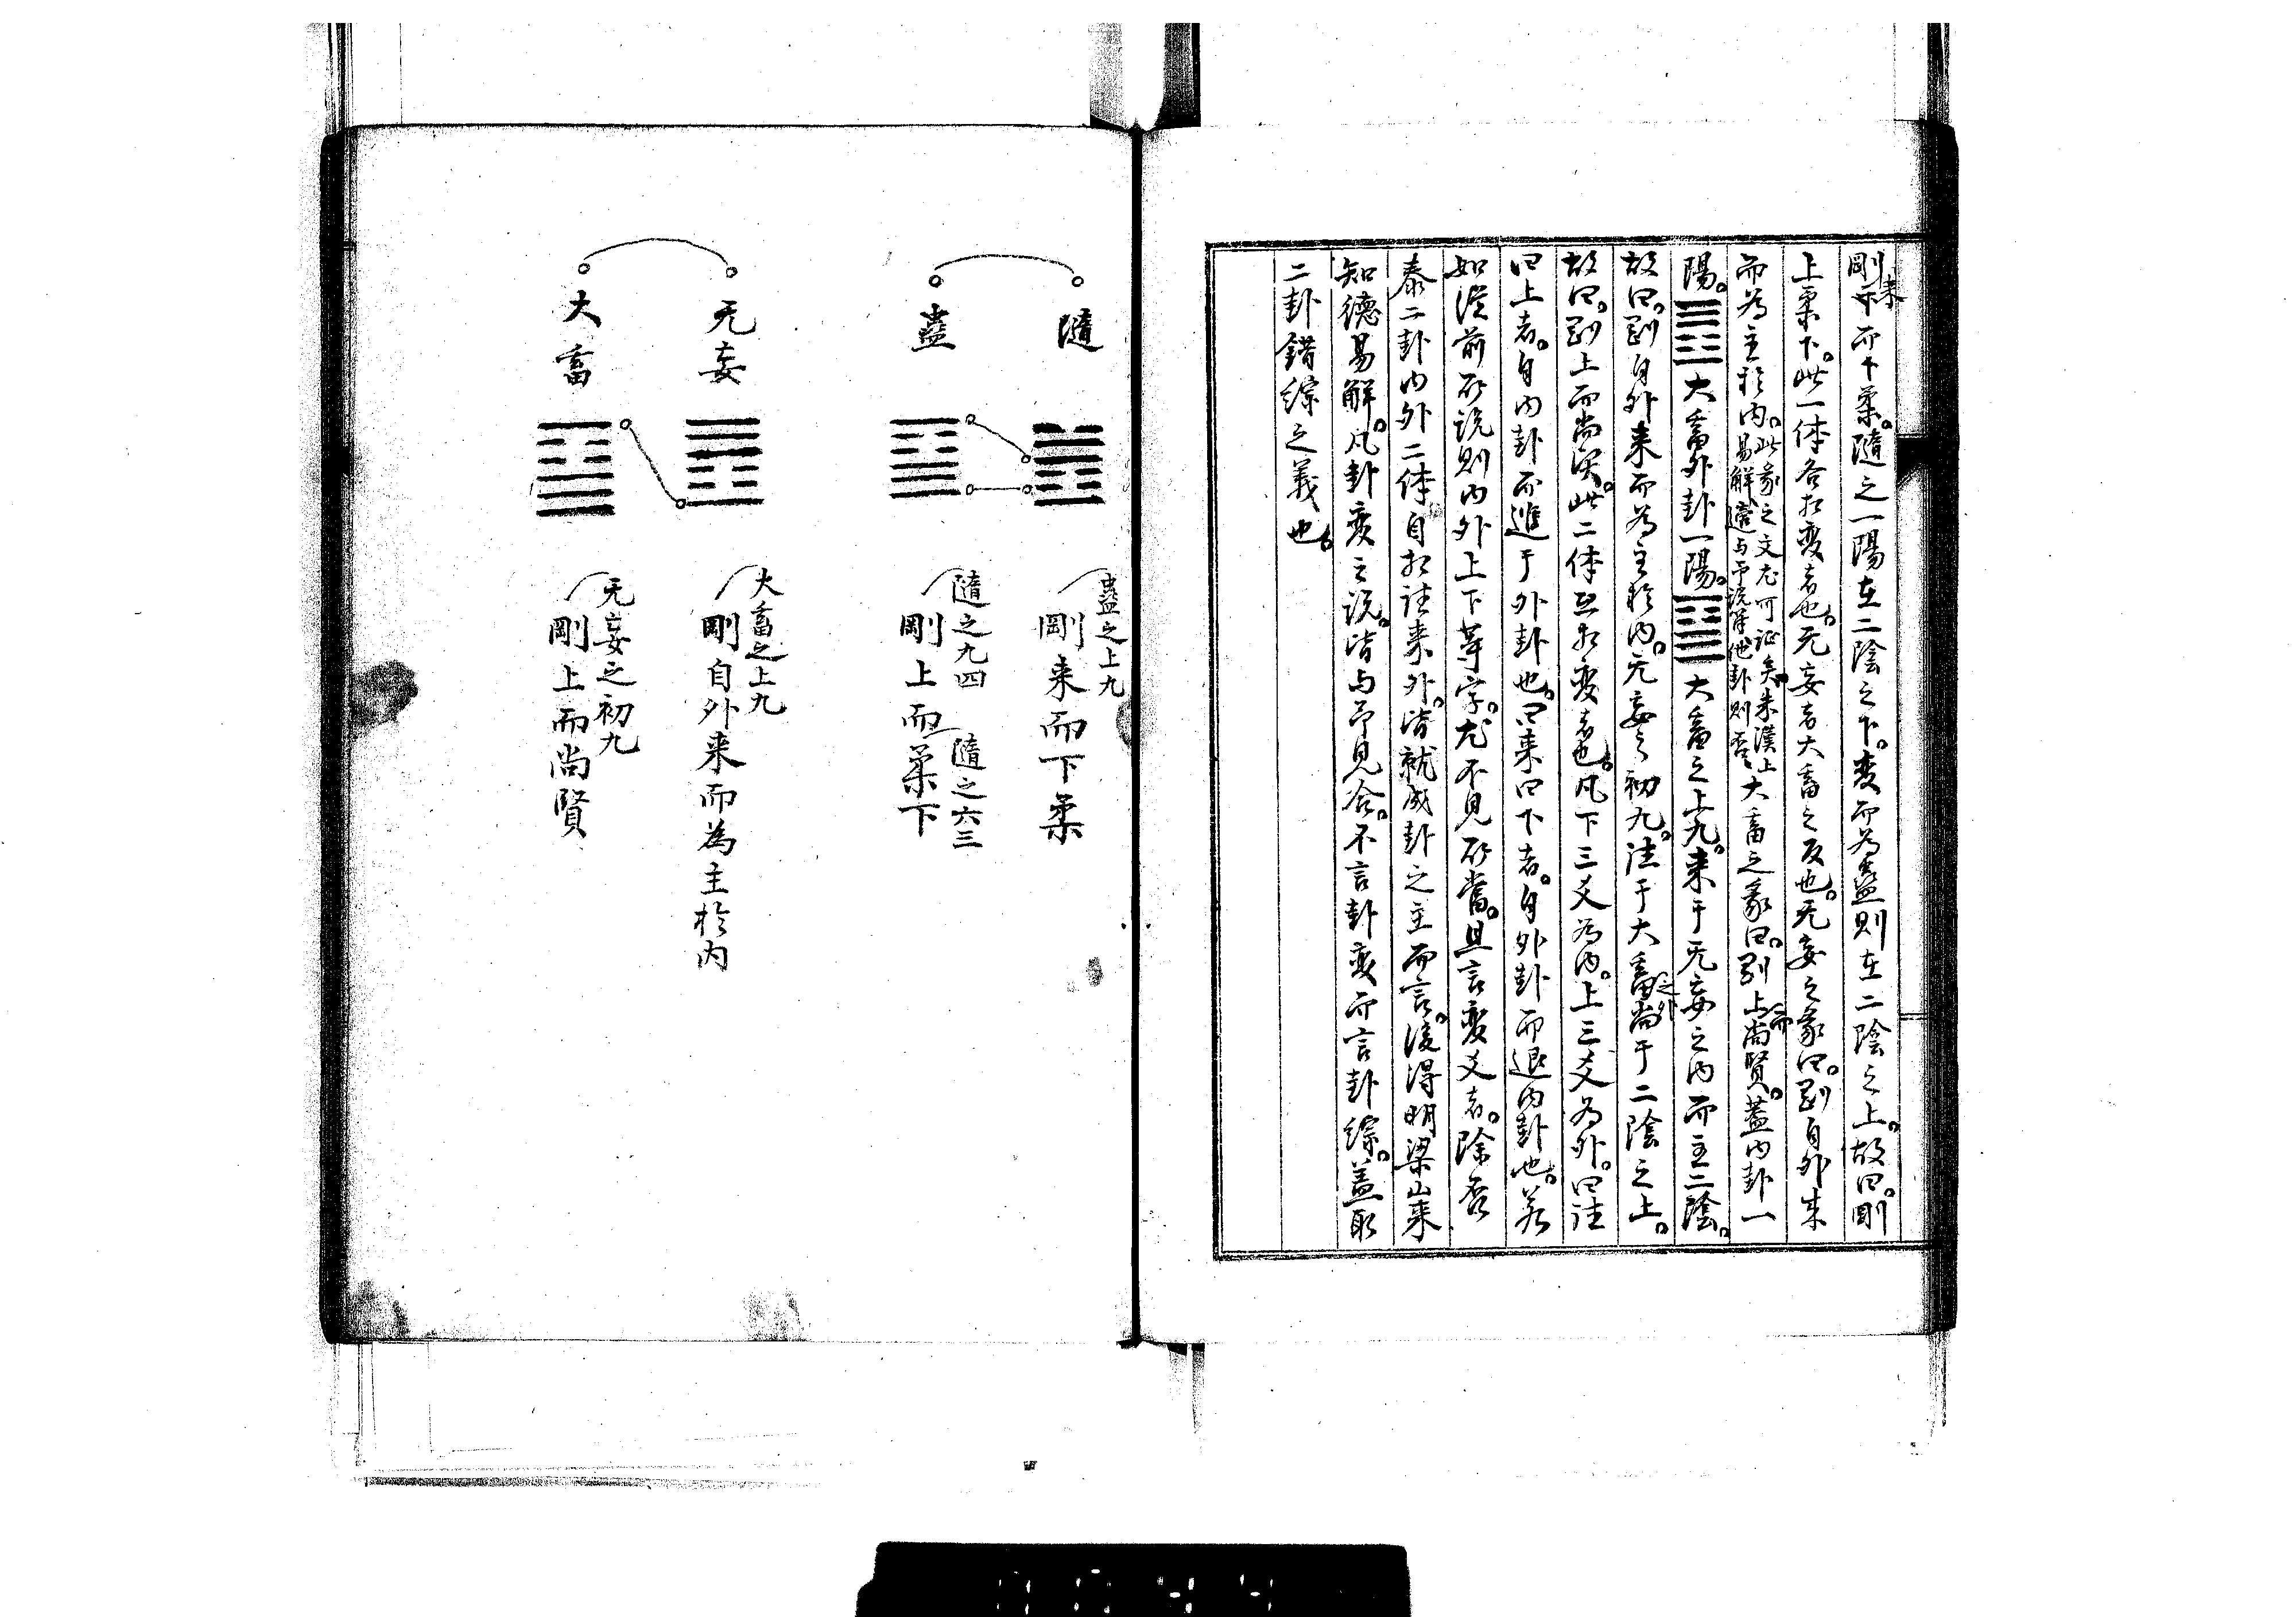 剛来而下柔。隨之一陽在二陰之下。変而為蠱則在二陰之上。故曰。剛
上柔下。此一体各相変者也。无妄者大畜之反也。无妄之彖曰。剛自外来
而為主於内。此彖之文尤可証矣朱漢上
易解隨与予説符他卦則否
大畜之彖曰。剛上而尚賢。蓋内卦一
陽。大畜外卦一陽。大畜之上九。来于无妄之内而主二陰。
故曰。剛自外来而為主於内。无妄之初九。往于大畜之外尚于二陰之上。
故曰。剛上而尚賢。此二体互相変者也。凡下三爻為内。上三爻為外。曰往
曰上者。自内卦而進于外卦也。曰来曰下者。自外卦而退内卦也。若
如従前所説則内外上下等字。尤不見所当。且言変爻者。除否
泰二卦内外二体自相往来外。皆就成卦之主而言。後得明梁山来
知德易解。凡卦変之説。皆与予見合。不言卦変而言卦綜。蓋取
二卦錯綜之義也。
隨
蠱之上九
剛来而下柔
蠱
隨之九四 隨之六三
剛上而柔下
无妄
大畜之上九
剛自外来而為主於内
大畜
无妄之初九
剛上而尚賢